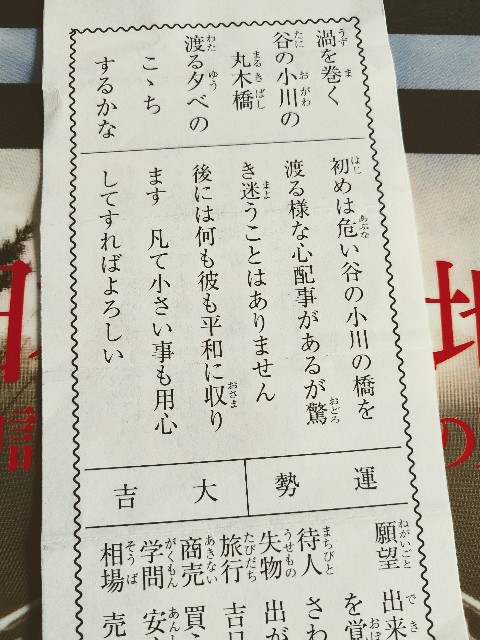 渦を巻く
谷の小川の
丸木橋
渡る夕べの
こゝち
するかな
初めは危い谷の小川の橋を
渡る様な心配事があるが驚
き迷うことはありません
後には何も彼も平和に収り
ます 凡て小さい事も用心
してすればよろしい
運勢
大吉
願望 出来
を覚
待人 さわ
失物 出が
旅行 吉日
商売 買
学問 安
相場 売